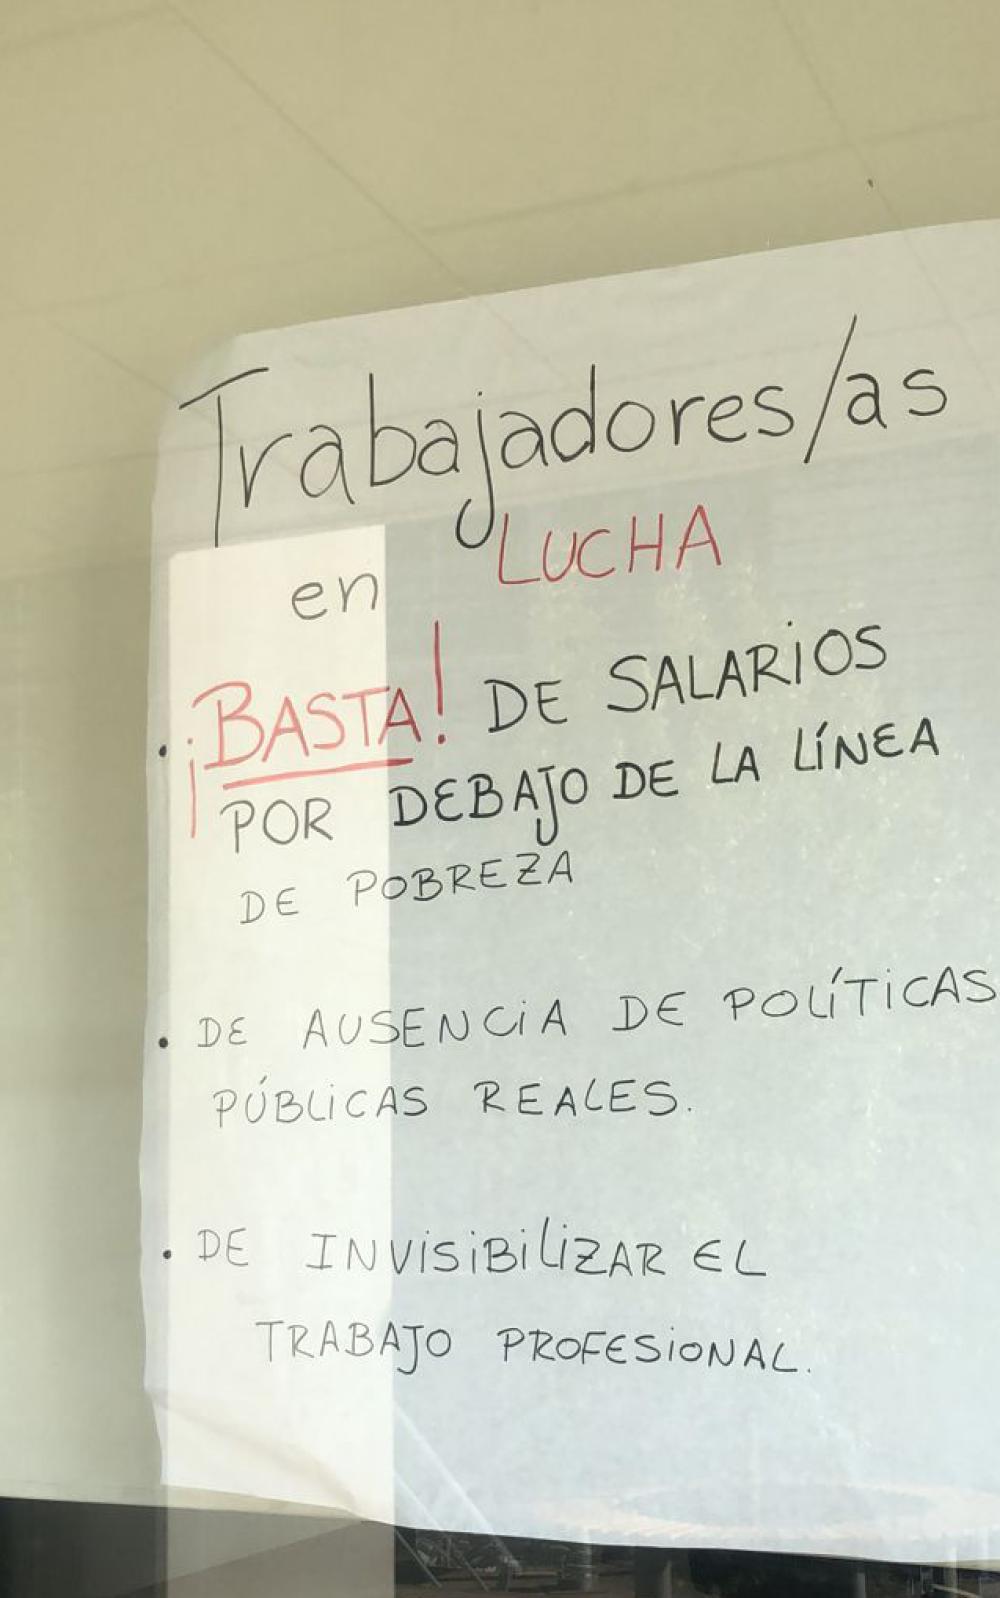 Trabajadores/as
en LUCHA
. ¡BASTA! DE SALARIOS
POR DEBAJO DE LA LÍNEA
DE POBREZA
. DE AUSENCIA DE POLÍTICAS
PÚBLICAS REALES.
. DE INVISIBILIZAR EL
TRABAJO PROFESIONAL.